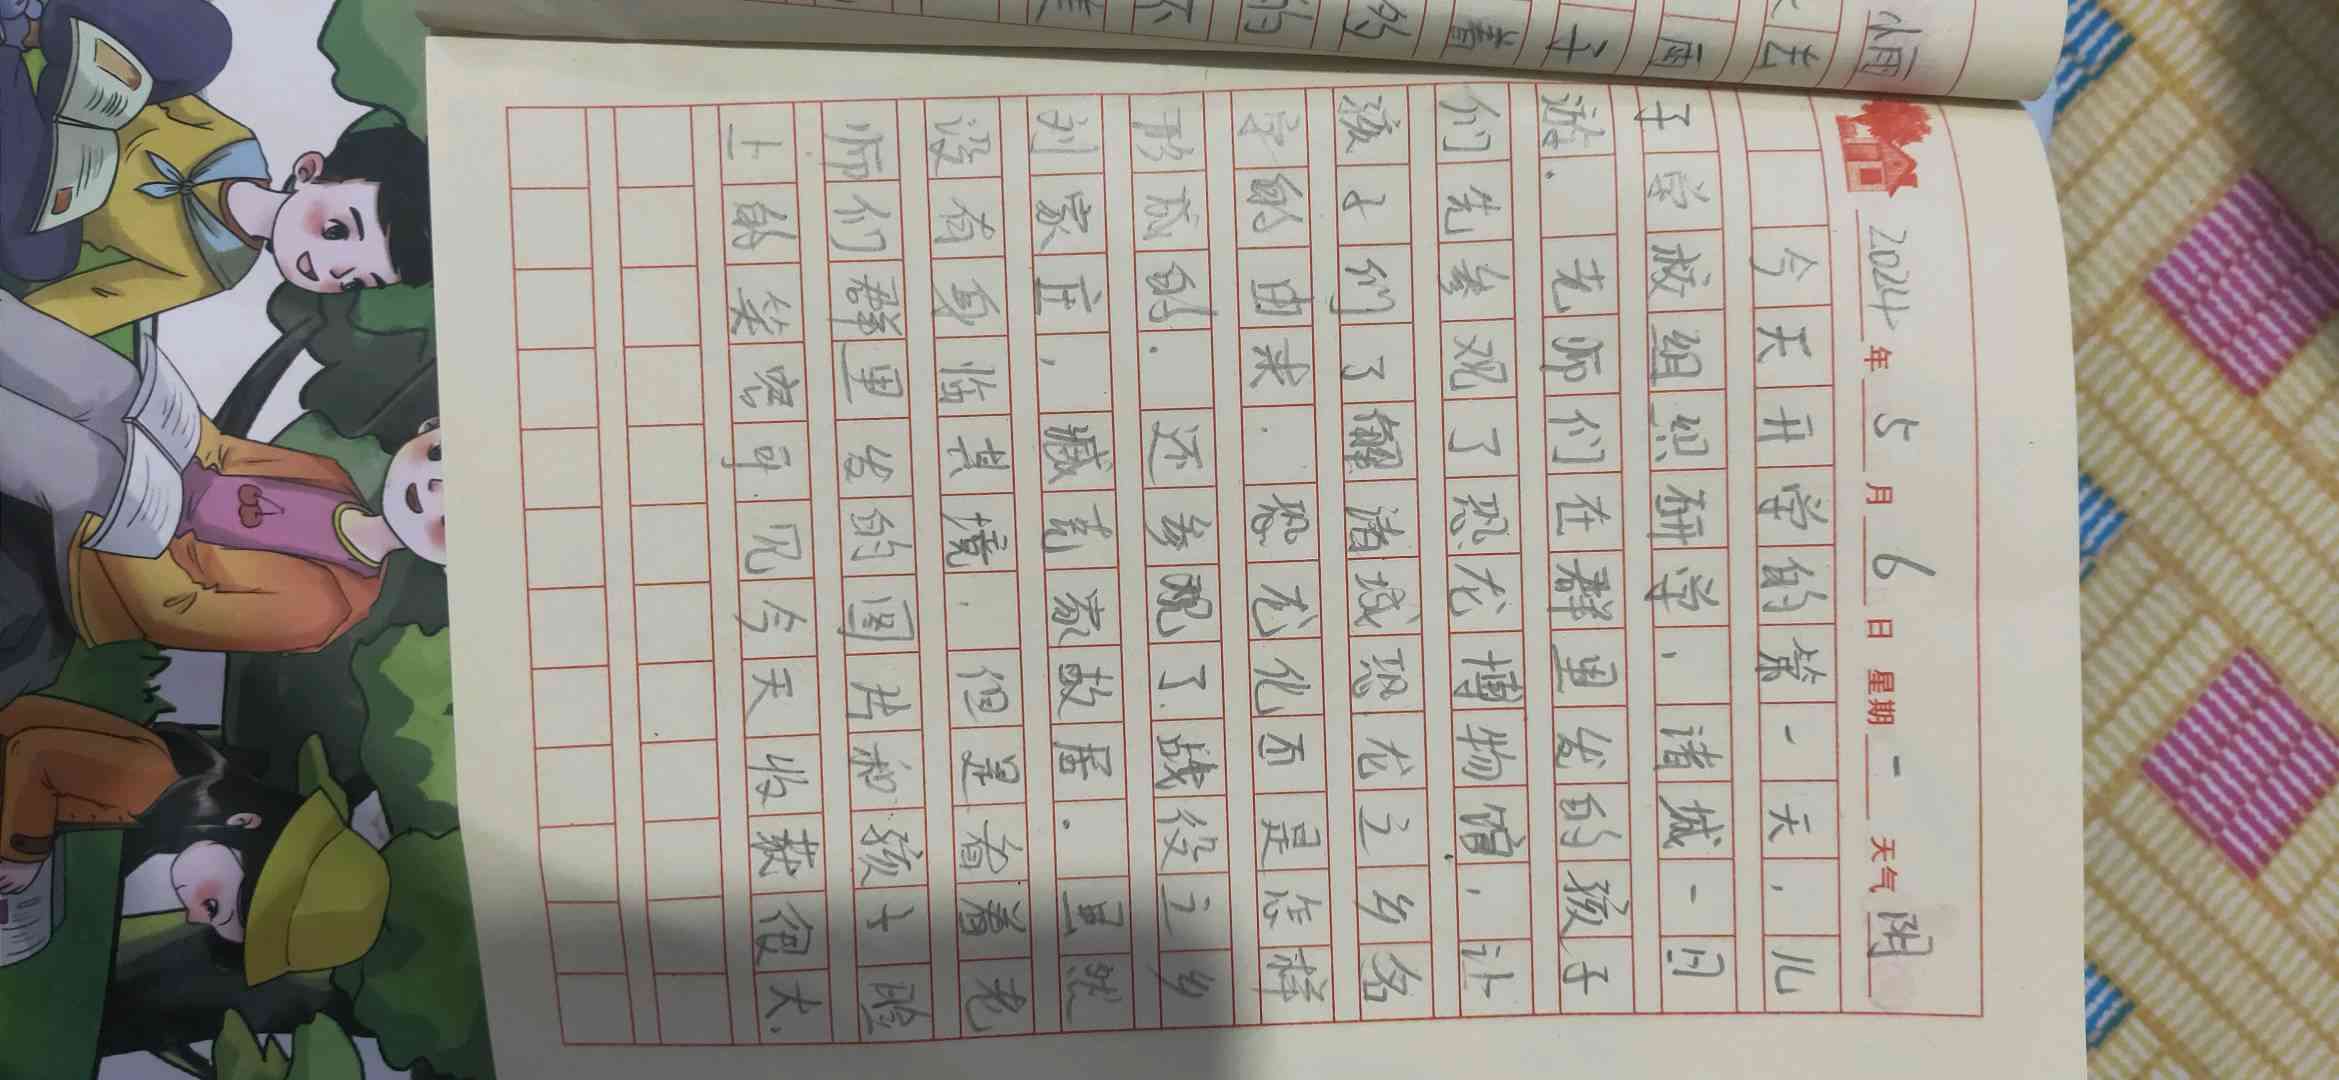 2024年5月6日 星期一 天气阴
今天开学的第一天,儿
子学校组织研学,诸城一日
游.老师们在群里发的孩子
们先参观了恐龙博物馆,让
孩子们了解诸城恐龙之乡名
字的由来.恐龙化石是怎样
形成的.还参观了.战役之乡
刘家庄,臧克家故居.虽然
没有身临其境.但是看着老
师们群里发的图片和孩子脸
上的笑容可见今天收获很大.